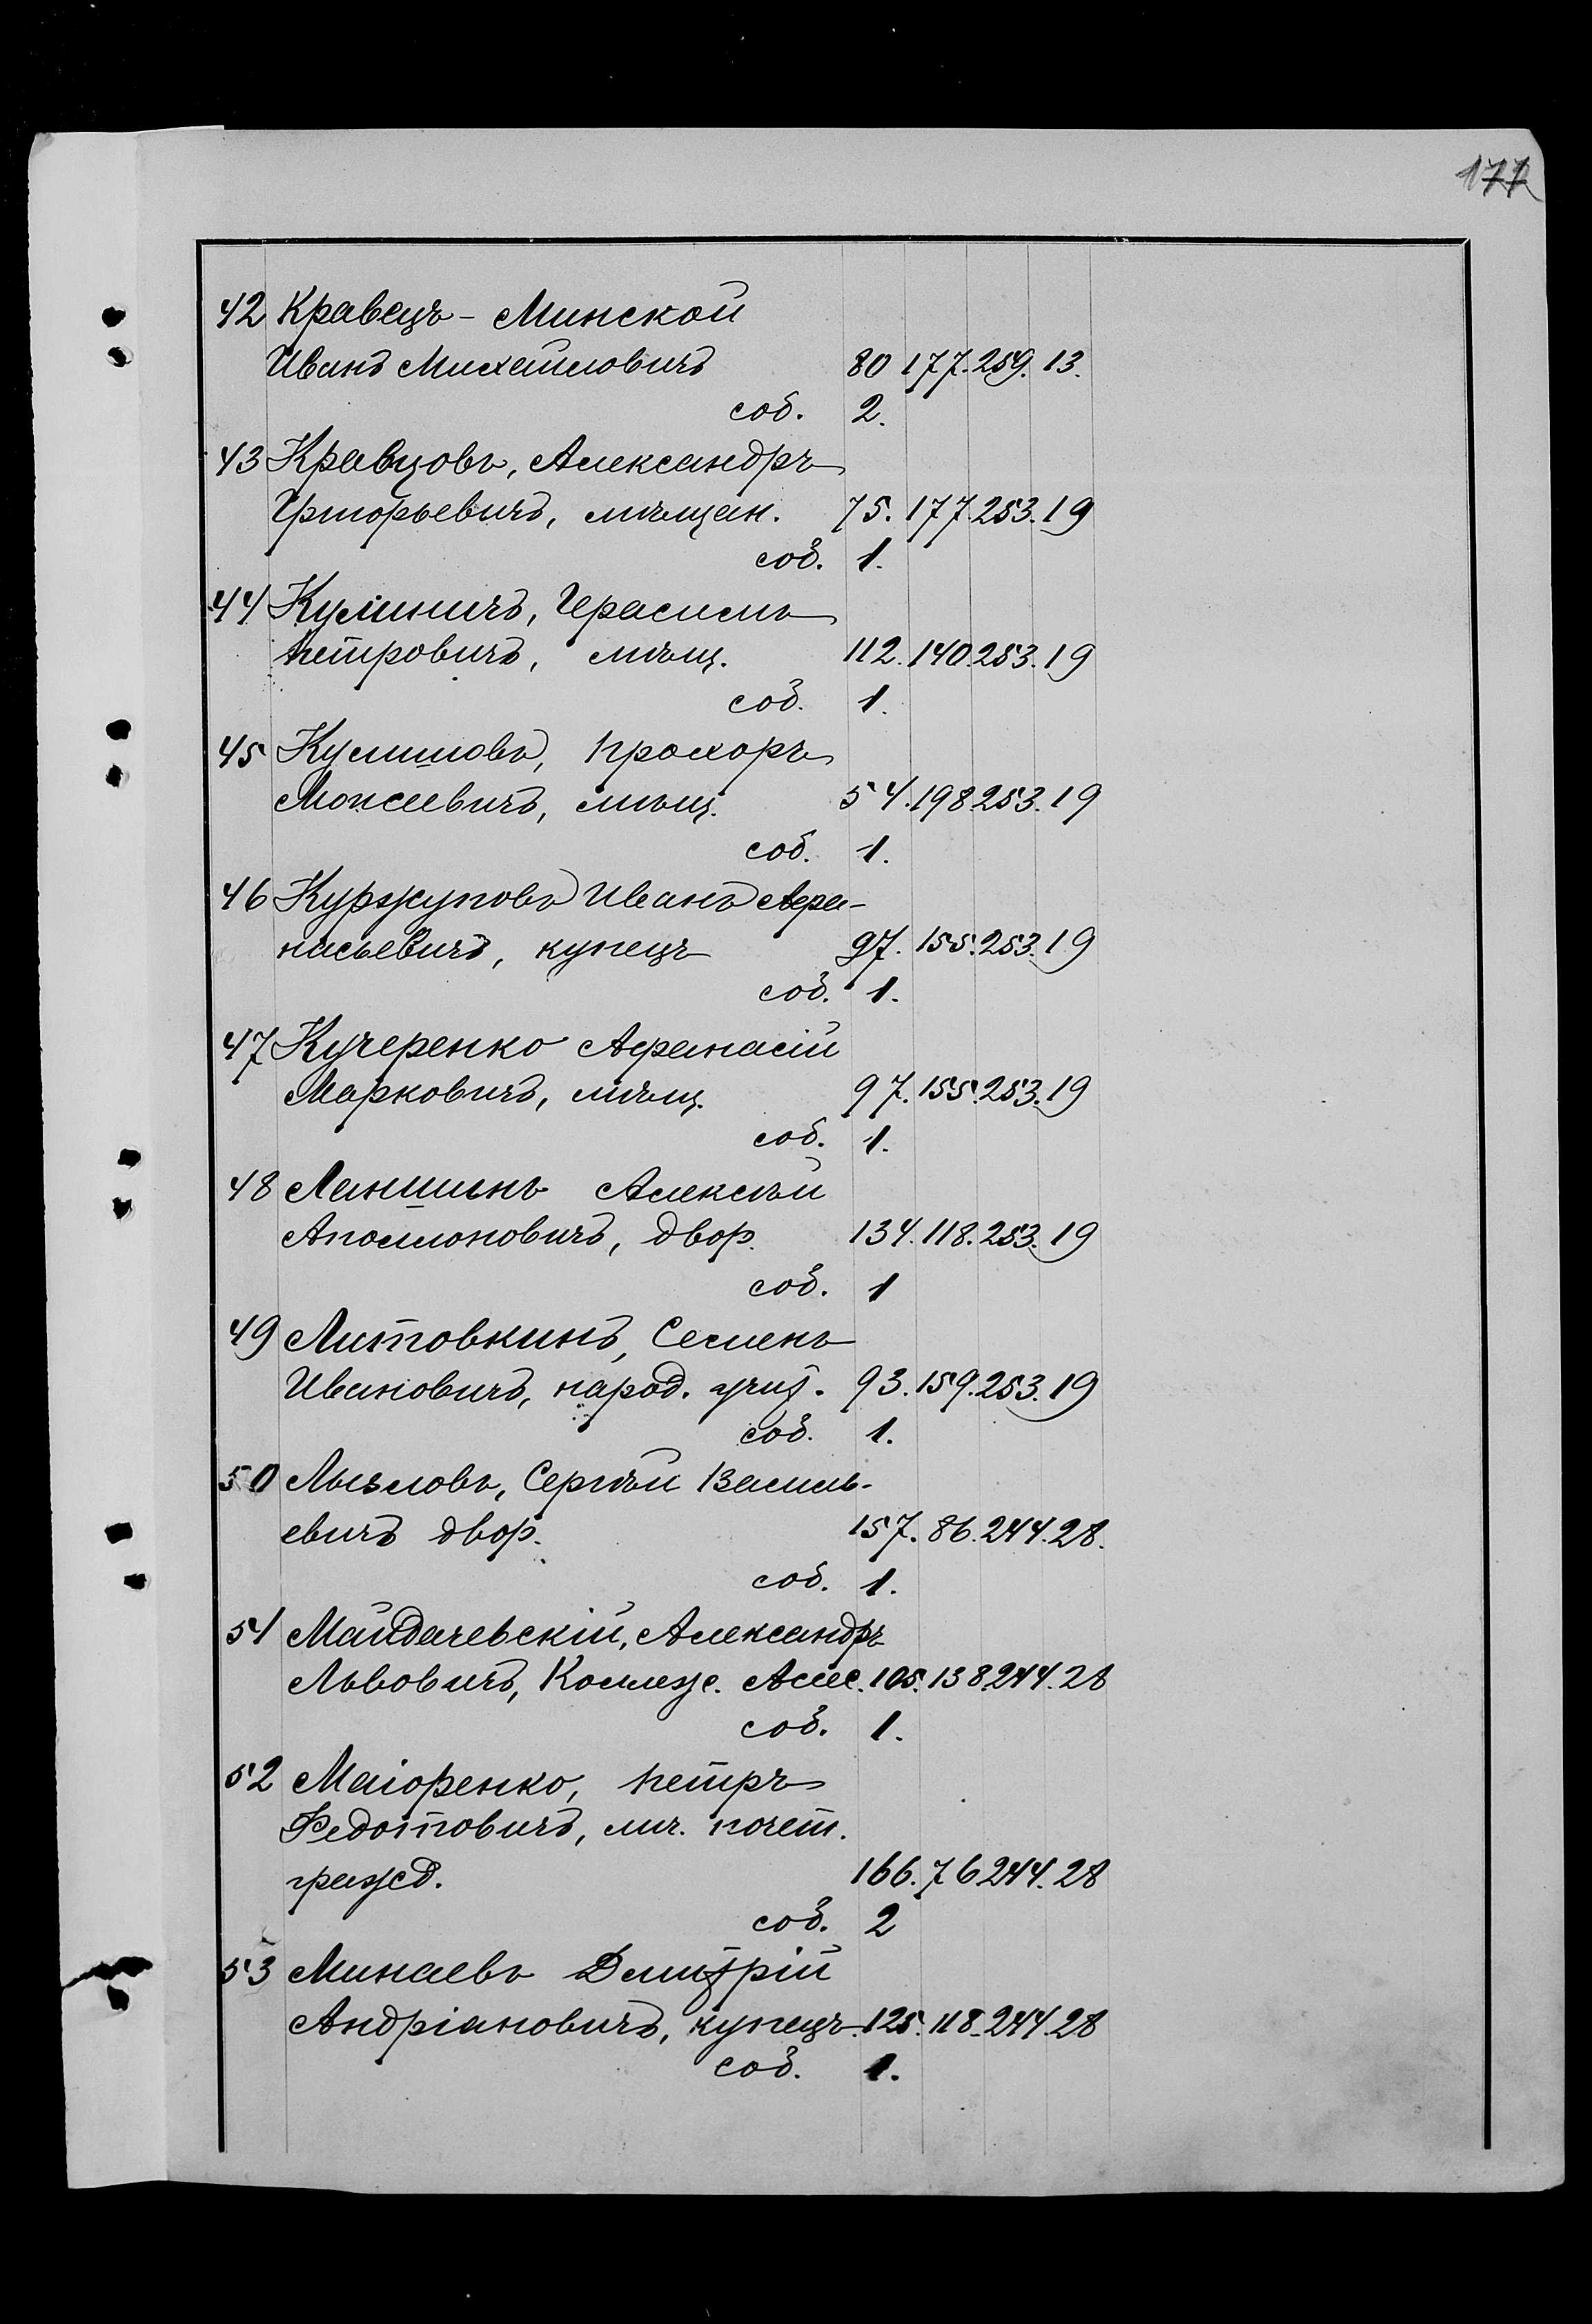 177
42 Кравецъ - Минской
Иванъ Михайловичъ 80 177. 259. 13.
соб. 2.
43 Кравцовъ, Александръ
Григорьевичъ, мѣщан. 75. 177. 253. 19
соб. 1.
44 Кулиничъ, Герасимъ
Петровичъ, мѣщ. 112. 140. 253. 19
соб. 1.
45 Кулишовъ, Прохоръ
Моисеевичъ, мѣщ. 54. 198 253. 19
соб. 1.
46 Куржуповъ Иванъ Афа-
насьевичъ, купецъ 97. 155. 253. 19
соб. 1.
47 Кучеренко Афанасій
Марковичъ, мѣщ. 97. 155. 253. 19
соб. 1.
48 Ланшинъ Алексѣй
Аполлоновичъ, двор. 134. 118. 253. 19
соб. 1
49 Литовкинъ, Семенъ
Ивановичъ, народ. учит. 93. 159. 253. 19
соб. 1.
50 Лызловъ, Сергѣй Василь-
евичъ двор. 157. 86. 244. 28.
соб. 1.
51 Майдачевскій, Александръ
Львовичъ, Коллеж. Асес. 105. 138 244. 28
соб. 1.
52 Маіоренко, Петръ
Федотовичъ, лич. почет.
гражд. 166. 76 244. 28
соб. 2
53 Минаевъ Дмитрій
Андріановичъ, купецъ. 125. 118. 244. 28
соб. 1.